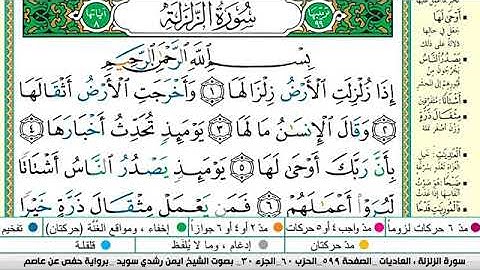 سُورَةُ الزَّلْزَلَةِ
بِسْمِ اللَّهِ الرَّحْمَٰنِ الرَّحِيمِ
إِذَا زُلْزِلَتِ الْأَرْضُ زِلْزَالَهَا ١ وَأَخْرَجَتِ الْأَرْضُ أَثْقَالَهَا
٢ وَقَالَ الْإِنسَٰنُ مَا لَهَا ٣ يَوْمَئِذٍ تُحَدِّثُ أَخْبَارَهَا ٤
بِأَنَّ رَبَّكَ أَوْحَىٰ لَهَا ٥ يَوْمَئِذٍ يَصْدُرُ النَّاسُ أَشْتَاتًا
لِّيُرَوْا أَعْمَٰلَهُمْ ٦ فَمَن يَعْمَلْ مِثْقَالَ ذَرَّةٍ خَيْرًا
أَوْحَى لَهَا
يَصْدُرُ النَّاسُ
أَشْتَاتًا
مِثْقَالَ ذَرَّةٍ
مدّ ٦ حركات لزوماً
مدّ واجب ٤ أو ٥ حركات
مدّ ٢ أو ٤ أو ٦ جوازاً
إخفاء، ومواقع الغُنَّة (حركتان)
تفخيم
مدّ حركتان
إدغام، وما لا يُلفَظ
قلقلة
سورة الزلزلة ، العاديات - الصفحة ٥٩٩ - الحزب ٦٠ - الجزء ٣٠ - بصوت الشيخ ايمن رشدي سويد - برواية حفص عن عاصم